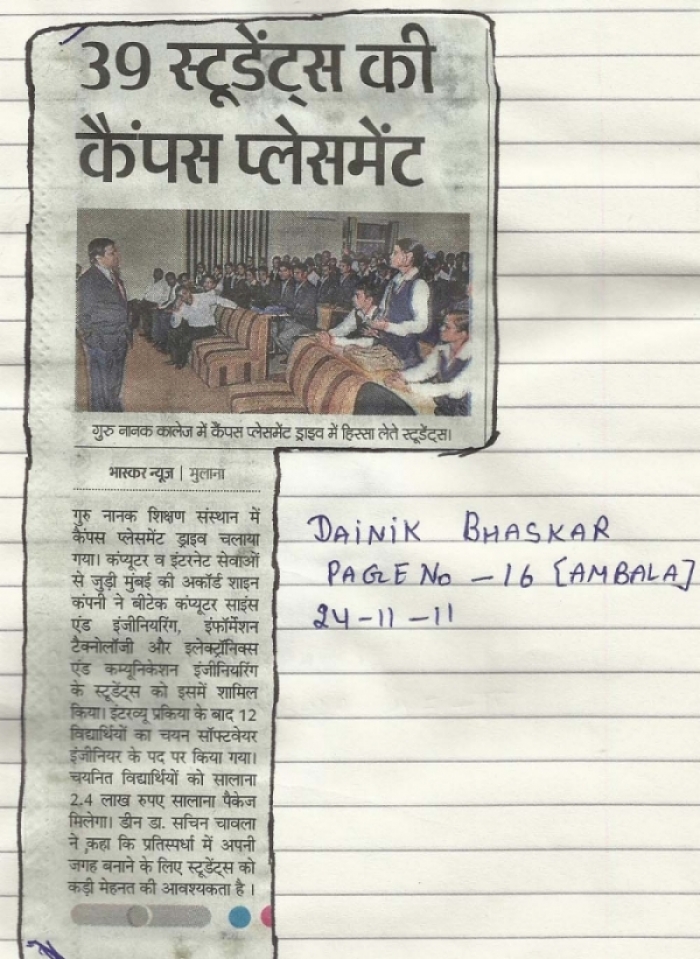 39 स्टूडेंट्स की
कैंपस प्लेसमेंट
गुरु नानक कालेज में कैंपस प्लेसमेंट ड्राइव में हिस्सा लेते स्टूडेंट्स।
भास्कर न्यूज | मुलाना
गुरु नानक शिक्षण संस्थान में
कैंपस प्लेसमेंट ड्राइव चलाया
गया। कंप्यूटर व इंटरनेट सेवाओं
से जुड़ी मुंबई की अकॉर्ड शाइन
कंपनी ने बीटेक कंप्यूटर साइंस
एंड इंजीनियरिंग, इंफॉर्मेशन
टैक्नोलॉजी और इलेक्ट्रॉनिक्स
एंड कम्यूनिकेशन इंजीनियरिंग
के स्टूडेंट्स को इसमें शामिल
किया। इंटरव्यू प्रकिया के बाद 12
विद्यार्थियों का चयन सॉफ्टवेयर
इंजीनियर के पद पर किया गया।
चयनित विद्यार्थियों को सालाना
2.4 लाख रुपए सालाना पैकेज
मिलेगा। डीन डा. सचिन चावला
ने कहा कि प्रतिस्पर्धा में अपनी
जगह बनाने के लिए स्टूडेंट्स को
कड़ी मेहनत की आवश्यकता है।
DAINIK BHASKAR
PAGE No - 16 [AMBALA]
24-11-11